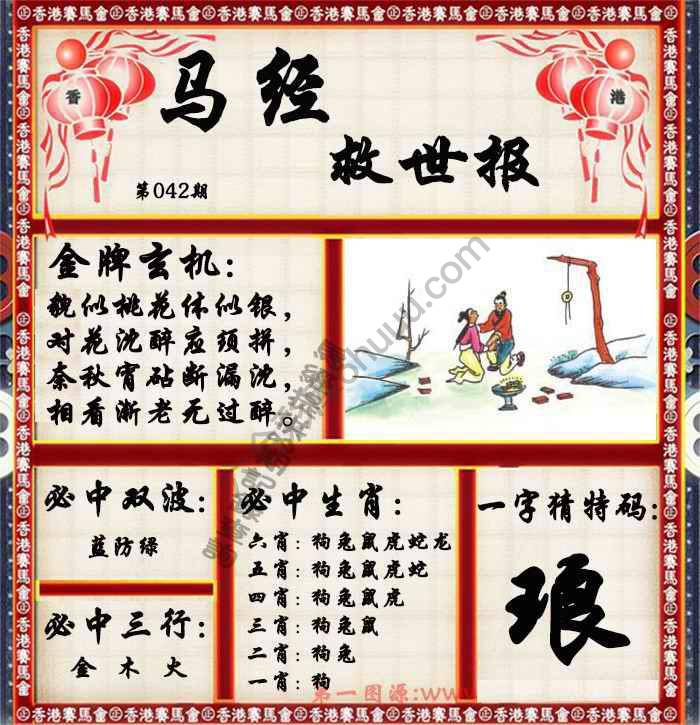 香港賽馬會
香
港
马经
救世报
第042期
金牌玄机:
貌似桃花体似银，
对花沈醉应须拼，
秦秋宵砧断漏沈，
相看渐老无过醉。
必中双波:
蓝防绿
必中三行:
金 木 火
必中生肖:
六肖: 狗兔鼠虎蛇龙
五肖: 狗兔鼠虎蛇
四肖: 狗兔鼠虎
三肖: 狗兔鼠
二肖: 狗兔
一肖: 狗
一字猜特码:
琅
第一图源:www